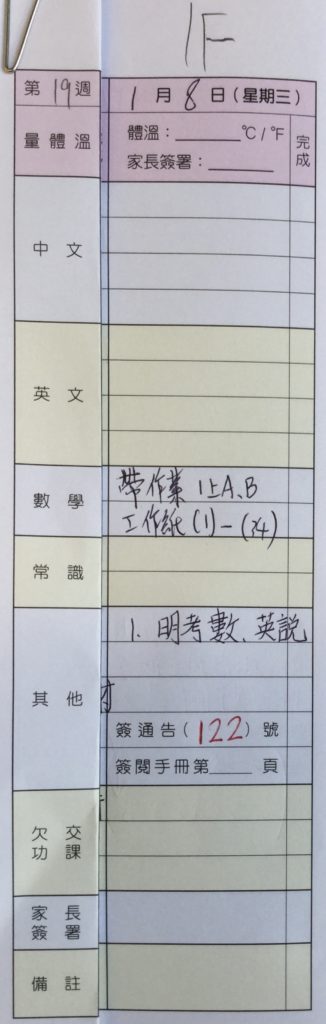 1F
第19週 1月8日(星期三)
量體溫 體溫：______ ℃/℉ 完成
家長簽署：______
中文
英文
數學 帶作業 1上A、B
工作紙(1)-(34)
常識
其他 1. 明考數、英說
簽通告(122)號
簽閱手冊第____頁
欠交功課
家長簽署
備註